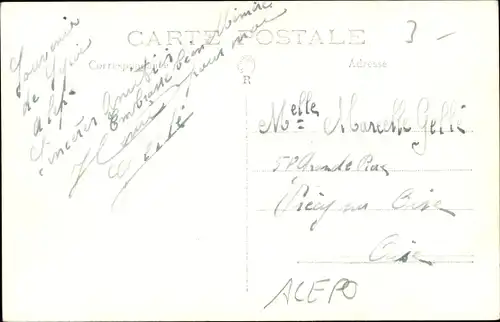 CARTE POSTALE
Correspondance
Adresse
3 -
Souvenir
de
Alep
Sincères Amitiés
Embrasse bien Mémère
pour moi
Melle Marcelle Gellé
58 Grande Rue
Précy sur Oise
Oise
ACEPO